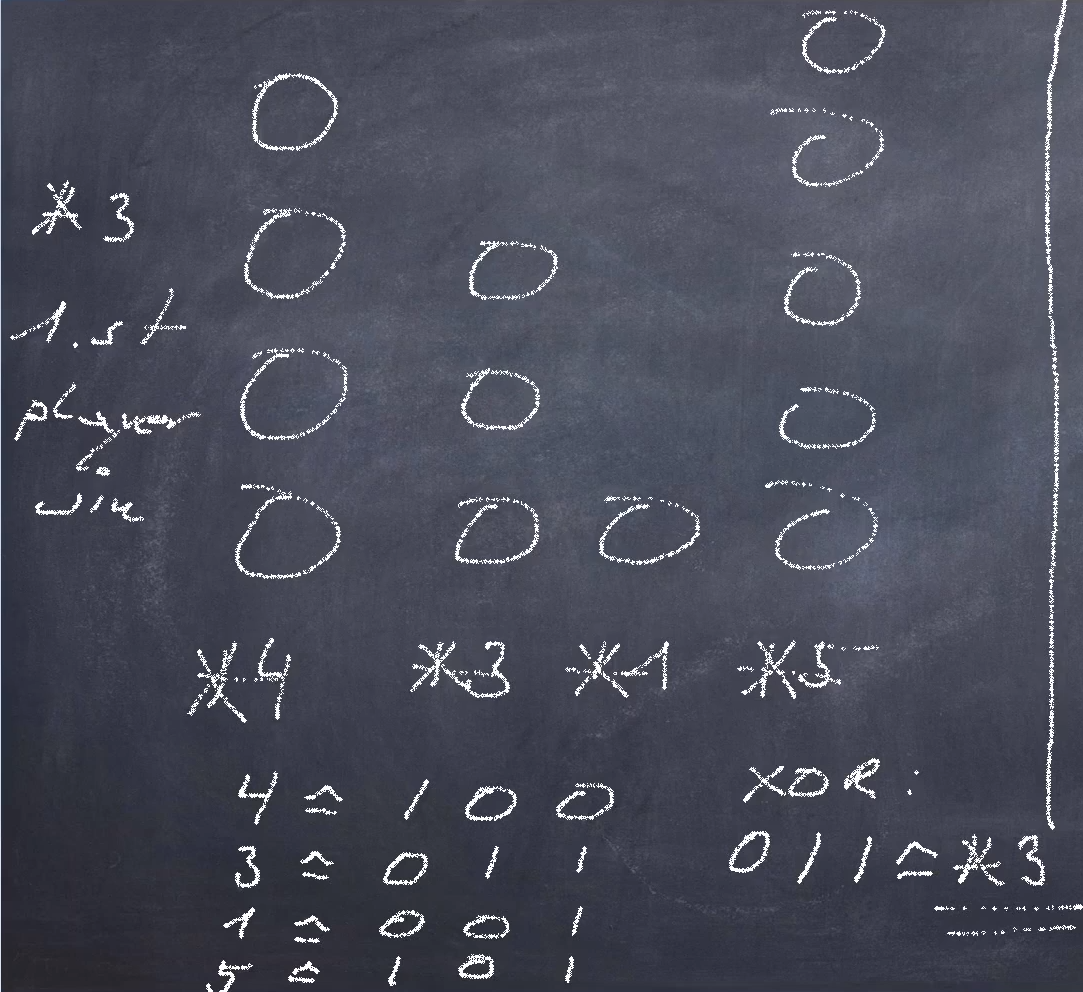 *3
1.st
player
win
*4 *3 *1 *5
4 ≙ 100
3 ≙ 011
1 ≙ 001
5 ≙ 101
XOR:
011 ≙ *3